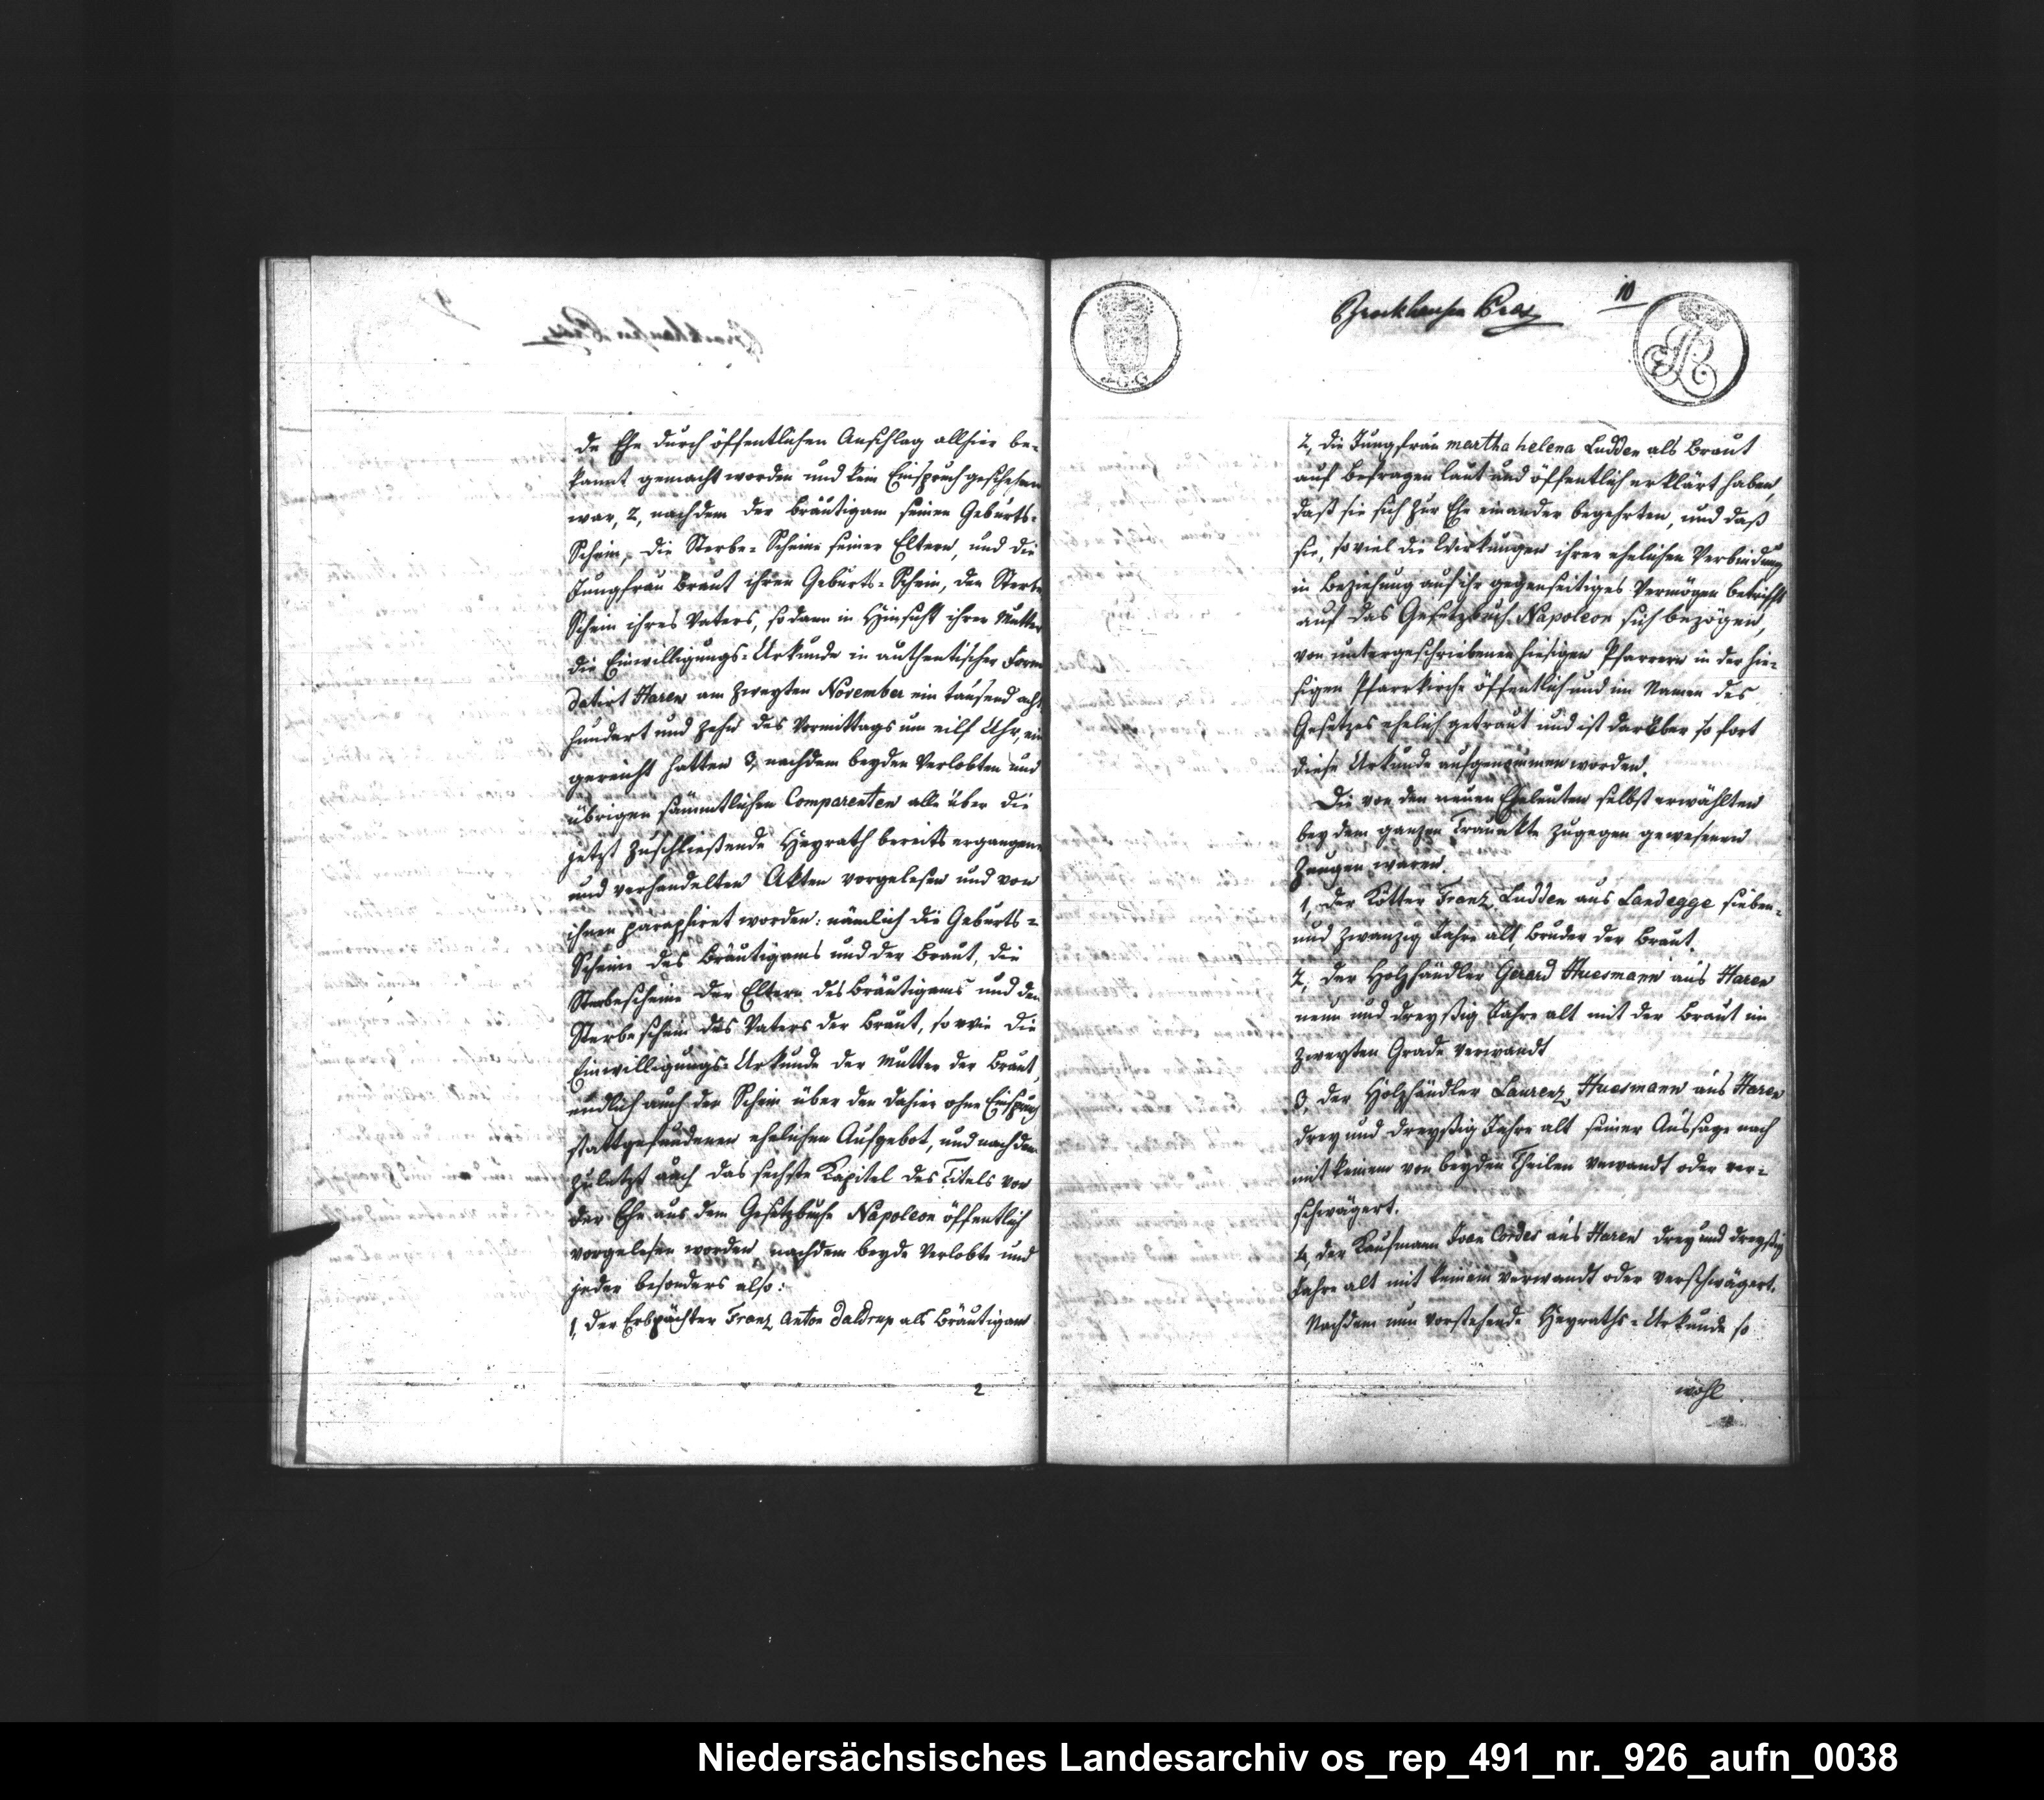 de Ehe durch öffentlichen Anschlag allhier be-
kannt gemacht worden und kein Einspruch geschehen
war, 2, nachdem der Bräutigam seinen Geburts-
Schein, die Sterbe-Scheine seiner Eltern, und die
Jungfrau Braut ihren Geburts-Schein, den Sterbe
Schein ihres Vaters, so dann in Hinsicht ihrer Mutter
die Einwilligungs-Urkunde in authentischer Form
datirt Haren am zweyten November ein tausend acht
hundert und zehn des Vormittags um eilf Uhr, ein
gereicht hatten 3, nachdem beyden Verlobten und
übrigen sämmtlichen Comparenten alle über die
jetzt zuschließende Heyrath bereits ergangene
und verhandelten Akten vorgelesen und von
ihnen paraphiret worden: nämlich die Geburts-
Scheine des Bräutigams und der Braut, die
Sterbescheine der Eltern des Bräutigams und den
Sterbeschein des Vaters der Braut, so wie die
Einwilligungs-Urkunde der Mutter der Braut,
endlich auch der Schein über den dahier ohne Einspruch
stattgefundenen ehelichen Aufgebot, und nachdem
zuletzt auch das sechste Kapitel des Titels von
der Ehe aus dem Gesetzbuche Napoleon öffentlich
vorgelesen worden, nachdem beyde Verlobte und
jeder besonders also:
1, der Erbpächter Franz Anton Daldrup als Bräutigam
2
Brockhausen
10
J. G. G
2, die Jungfrau martha helena Ludden als Braut
auf Befragen laut und öffentlich erklärt haben,
daß sie sich zur Ehe einander begehrten, und daß
sie, so viel die Wirkungen ihrer ehelichen Verbindung
in Beziehung auf ihr gegenseitiges Vermögen betrifft
auf das Gesetzbuch Napoleon sich bezögen,
von untergeschriebenen hiesigen Pfarrern in der hie-
sigen Pfarrkirche öffentlich und im Namen des
Gesetzes ehelich getraut und ist darüber so fort
diese Urkunde aufgenommen worden.
Die von den neuen Eheleuten selbst erwählten
bey dem ganzen Traumakte zugegen gewesenen
Zeugen waren.
1, der Kötter Franz Ludden aus Landegge sieben-
und zwanzig Jahre alt, Bruder der Braut.
2, der Holzhändler Gerard Huesmann aus Haren
neun und dreyßig Jahre alt mit der Braut im
zweyten Grade verwandt
3, der Holzhändler Laurenz Huesmann aus Haren
drey und dreyßig Jahre alt seiner Aussage nach
mit keinem von beyden Theilen verwandt oder ver-
schwägert.
4, der Kaufmann Joan Cordes aus Haren drey und dreyßig
Jahre alt mit keinem verwandt oder verschwägert.
Nachdem nun vorstehende Heyraths-Urkunde so
wohl
Niedersächsisches Landesarchiv os_rep_491_nr._926_aufn_0038